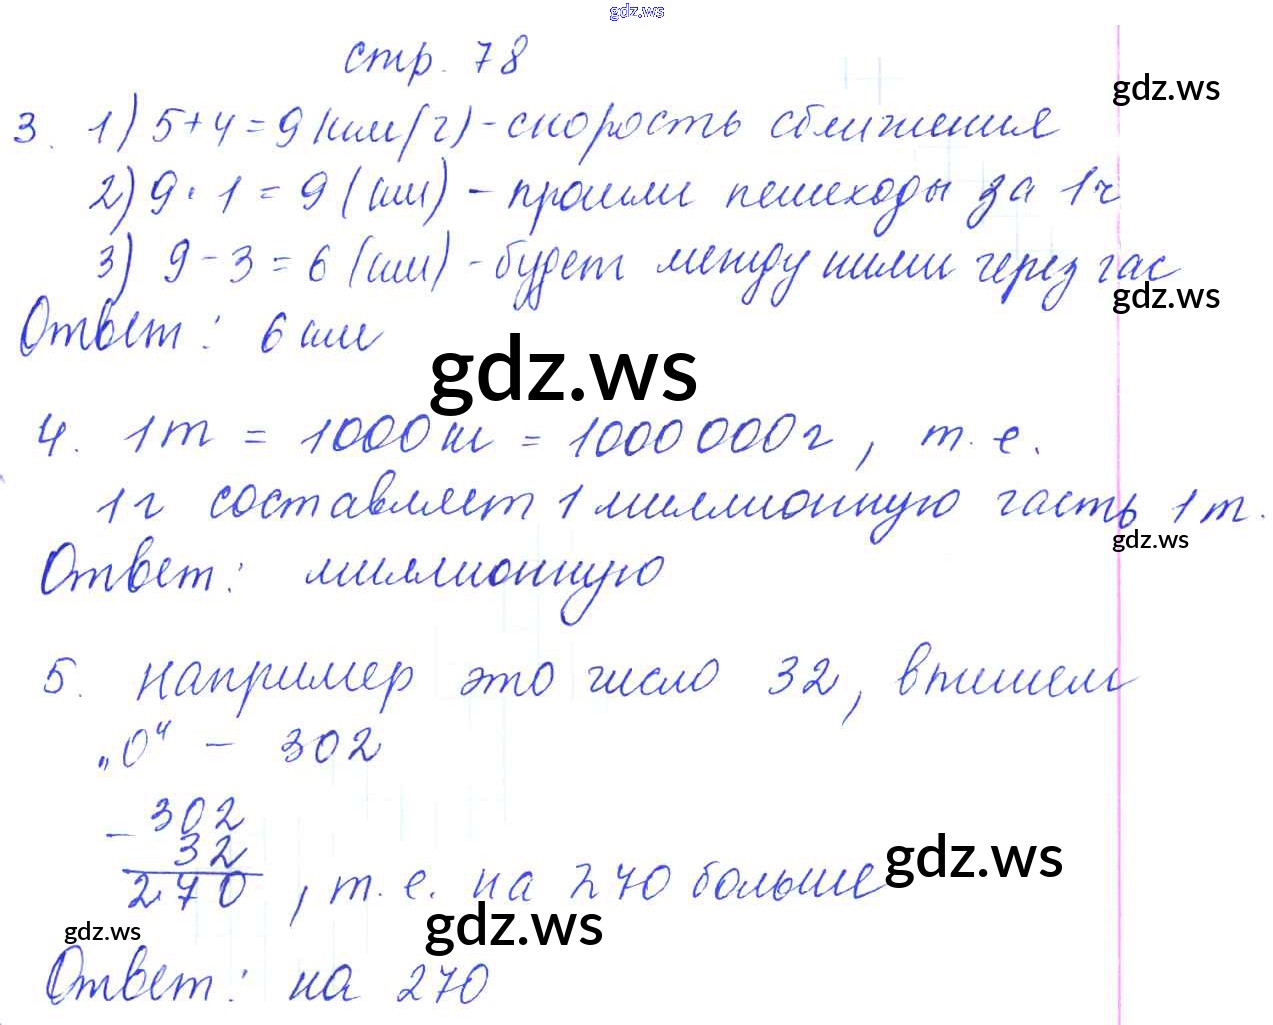 gdz.ws
стр. 78
gdz.ws
3. 1) 5+4=9 (км/ч) - скорость сближения
2) 9·1=9 (км) - прошли пешеходы за 1 ч
3) 9-3=6 (км) - будет между ними через час
gdz.ws
Ответ: 6 км
gdz.ws
4. 1 т = 1000 кг = 1000 000 г, т. е.
1 г составляет 1 миллионную часть 1 т.
gdz.ws
Ответ: миллионную
5. например это число 32, впишем
„0“ - 302
- 302
32
gdz.ws
270, т. е. на 270 больше
gdz.ws
gdz.ws
Ответ: на 270